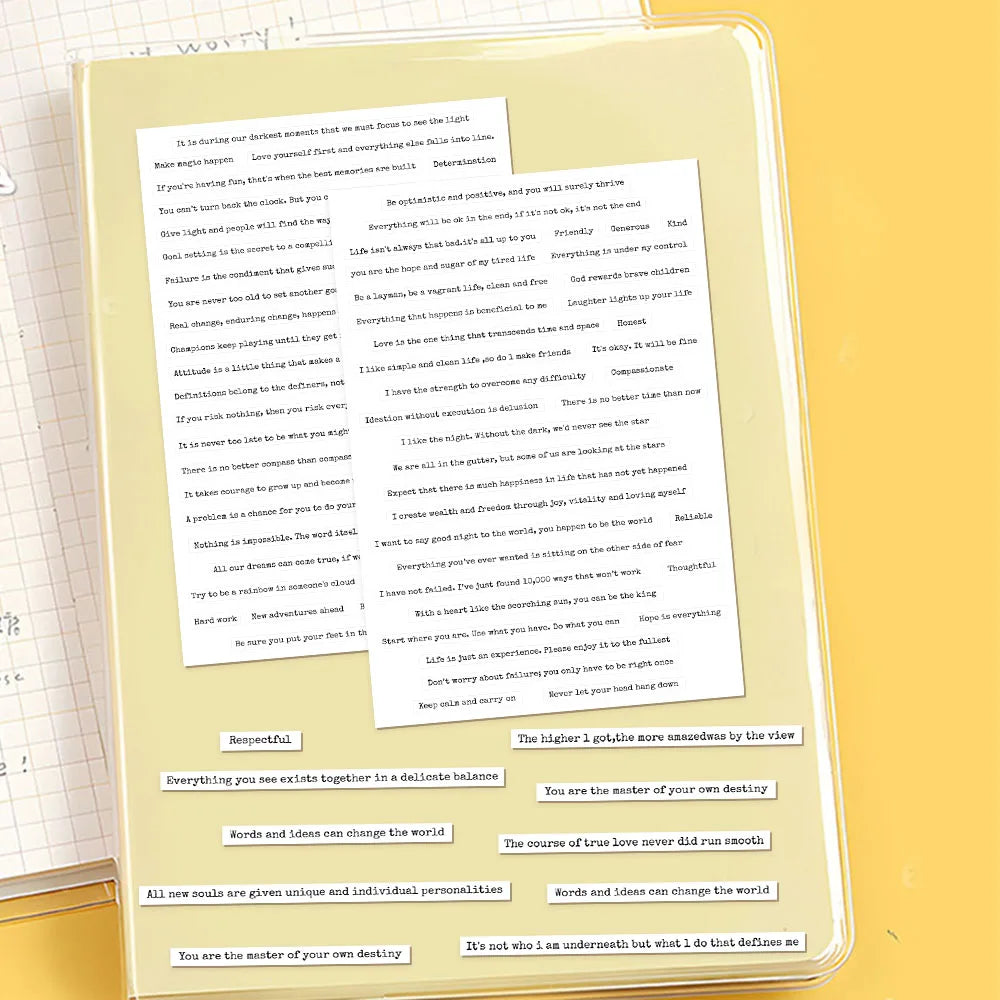 worry !
It is during our darkest moments that we must focus to see the light
Make magic happen Love yourself first and everything else falls into line.
If you're having fun, that's when the best memories are built Determination
You can't turn back the clock. But you c
Give light and people will find the way
Goal setting is the secret to a compelli
Failure is the condiment that gives suc
You are never too old to set another go
Real change, enduring change, happens
Champions keep playing until they get
Attitude is a little thing that makes a
Definitions belong to the definers, not
If you risk nothing, then you risk ever
It is never too late to be what you migh
There is no better compass than compass
It takes courage to grow up and become
A problem is a chance for you to do your
Nothing is impossible. The word itsel
All our dreams can come true, if we
Try to be a rainbow in someone's cloud
Hard work New adventures ahead B
Be sure you put your feet in th
Be optimistic and positive, and you will surely thrive
Everything will be ok in the end, if it's not ok, it's not the end
Life isn't always that bad.it's all up to you Friendly Generous Kind
you are the hope and sugar of my tired life Everything is under my control
Be a layman, be a vagrant life, clean and free God rewards brave children
Everything that happens is beneficial to me Laughter lights up your life
Love is the one thing that transcends time and space Honest
I like simple and clean life ,so do l make friends It's okay. It will be fine
I have the strength to overcome any difficulty Compassionate
Ideation without execution is delusion There is no better time than now
I like the night. Without the dark, we'd never see the star
We are all in the gutter, but some of us are looking at the stars
Expect that there is much happiness in life that has not yet happened
I create wealth and freedom through joy, vitality and loving myself
I want to say good night to the world, you happen to be the world Reliable
Everything you've ever wanted is sitting on the other side of fear
I have not failed. I've just found 10,000 ways that won't work Thoughtful
With a heart like the scorching sun, you can be the king
Start where you are. Use what you have. Do what you can Hope is everything
Life is just an experience. Please enjoy it to the fullest
Don't worry about failure; you only have to be right once
Keep calm and carry on Never let your head hang down
Respectful
The higher l got,the more amazedwas by the view
Everything you see exists together in a delicate balance
You are the master of your own destiny
Words and ideas can change the world
The course of true love never did run smooth
All new souls are given unique and individual personalities
Words and ideas can change the world
You are the master of your own destiny
It's not who i am underneath but what l do that defines me